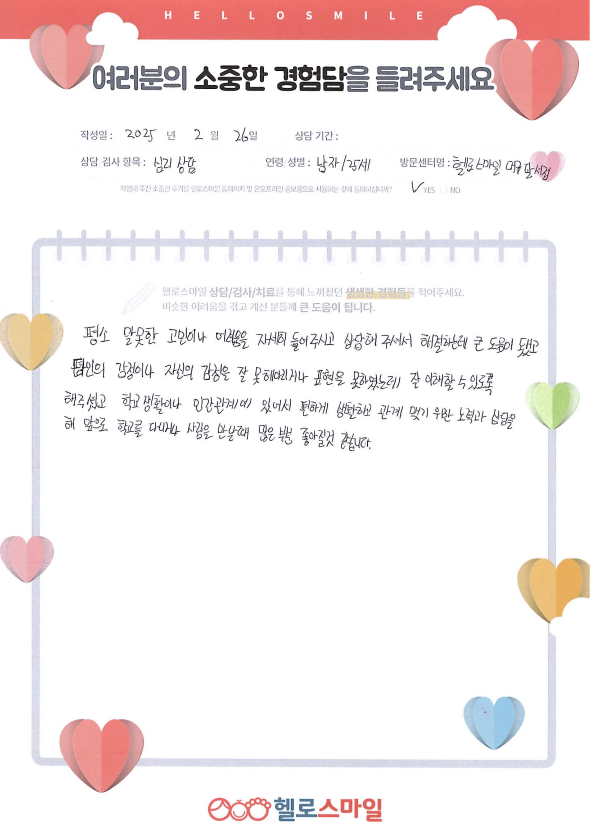 HELLOSMILE
여러분의 소중한 경험담을 들려주세요
작성일 : 2025 년 2 월 26일 상담 기간 :
상담 검사 항목 : 심리 상담 연령 성별 : 남자/25세 방문센터명 : 헬로스마일 대구 달서점
작성해 주신 소중한 후기를 헬로스마일 홈페이지 및 온오프라인 홍보용으로 사용하는 것에 동의하십니까? ✓ YES □ NO
헬로스마일 상담/검사/치료를 통해 느끼셨던 생생한 경험들을 적어주세요.
비슷한 어려움을 겪고 계신 분들께 큰 도움이 됩니다.
평소 말못한 고민이나 어려움을 자세히 들어주시고 상담해 주셔서 해결하는데 큰 도움이 됐고
타인의 감정이나 자신의 감정을 잘 못헤아리거나 표현을 못하였는데 잘 이해할 수 있도록
해주셨고 학교생활이나 인간관계에 있어서 편하게 생활하고 관계 맺기 위한 노력과 상담을
해 앞으로 학교를 다니거나 사람을 만날때 많은 부분 좋아질것 같습니다.
헬로스마일